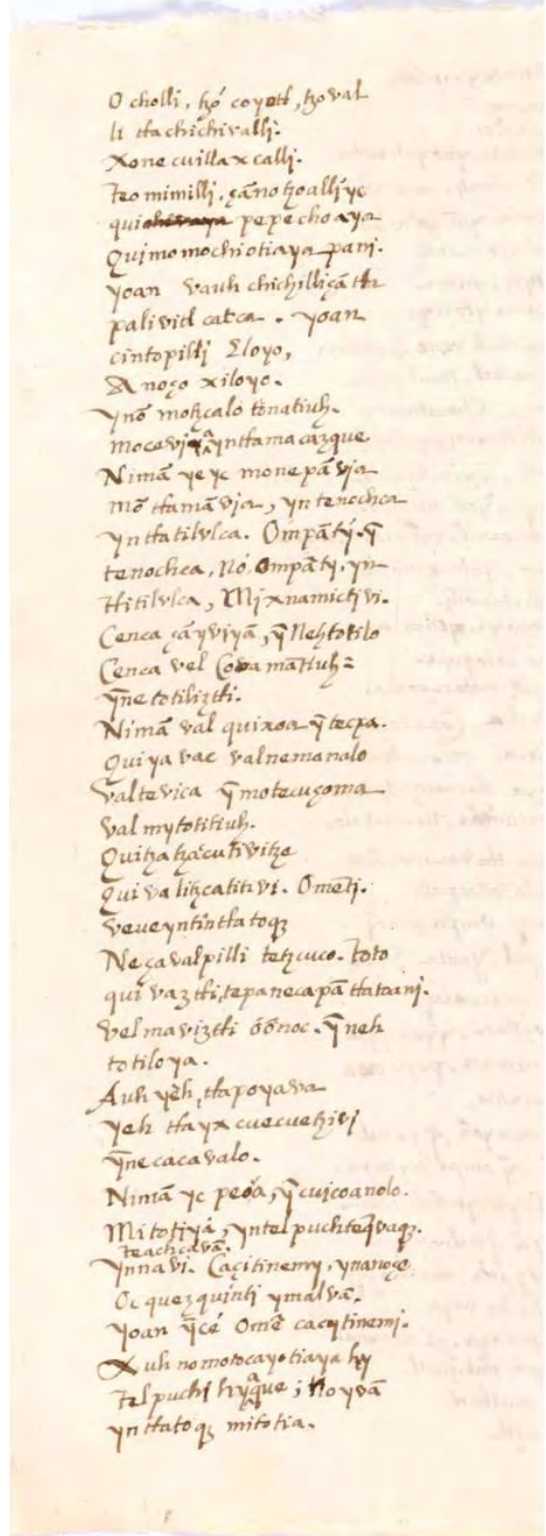 O cholli, tzó coyotl, tzoval
li tlachichivalli.
Xonecuillaxcalli.
Teomimilli, çānotzoallÿc
qui pepechoaya
Quimomochiotiaya pani.
yoan vauhchichilliçātla
palivitl catca. yoan
cintopilli Eloyo,
Anoço xiloyo.
ynō motzcalo tōnatiuh.
mocavia yntlamacazque
Nimā ye yc monepāvia
mōtlamāvia, yn tenochca
yn tlatilulca. Ompāti. ȳ
tenochca, No Ompāti. yn
tlatilulca, Mixnamictivi.
Cenca çāyviyā, ȳ Nehtotilo
Cenca vel Cova mātiuh
ȳnetotiliztli.
Nimā val quixoa ȳ tecpa.
Quiyavac valnemanalo
valtevica ȳ motecuçoma
valmytotitiuh.
Quitzatzacutivitze
Quivalitzcatitivi. Omēti.
veveyntin tlatoq̄
Neçavalpilli tetzcuco. Toto
quivaztli, tepanecapā tlatoani.
vel maviztli ōōnoc. ȳneh
totiloya.
Auh yeh, tlapoyava
yeh tlayxcuecuetzivi
ȳnecacavalo.
Nimā yc peoa, ȳ cuicoanolo.
Mitotiyā, yntelpuchtequivaq̄.
teachcavā.
ynnavi. Caçitinemy, ynanoço
Oc quezquinti ymalvā.
yoan ȳcé Omē cacytinemi.
Auh nomotocayotiaya hy
telpuchihyaque; No yvā
yn tlatoq̄ mitotia.